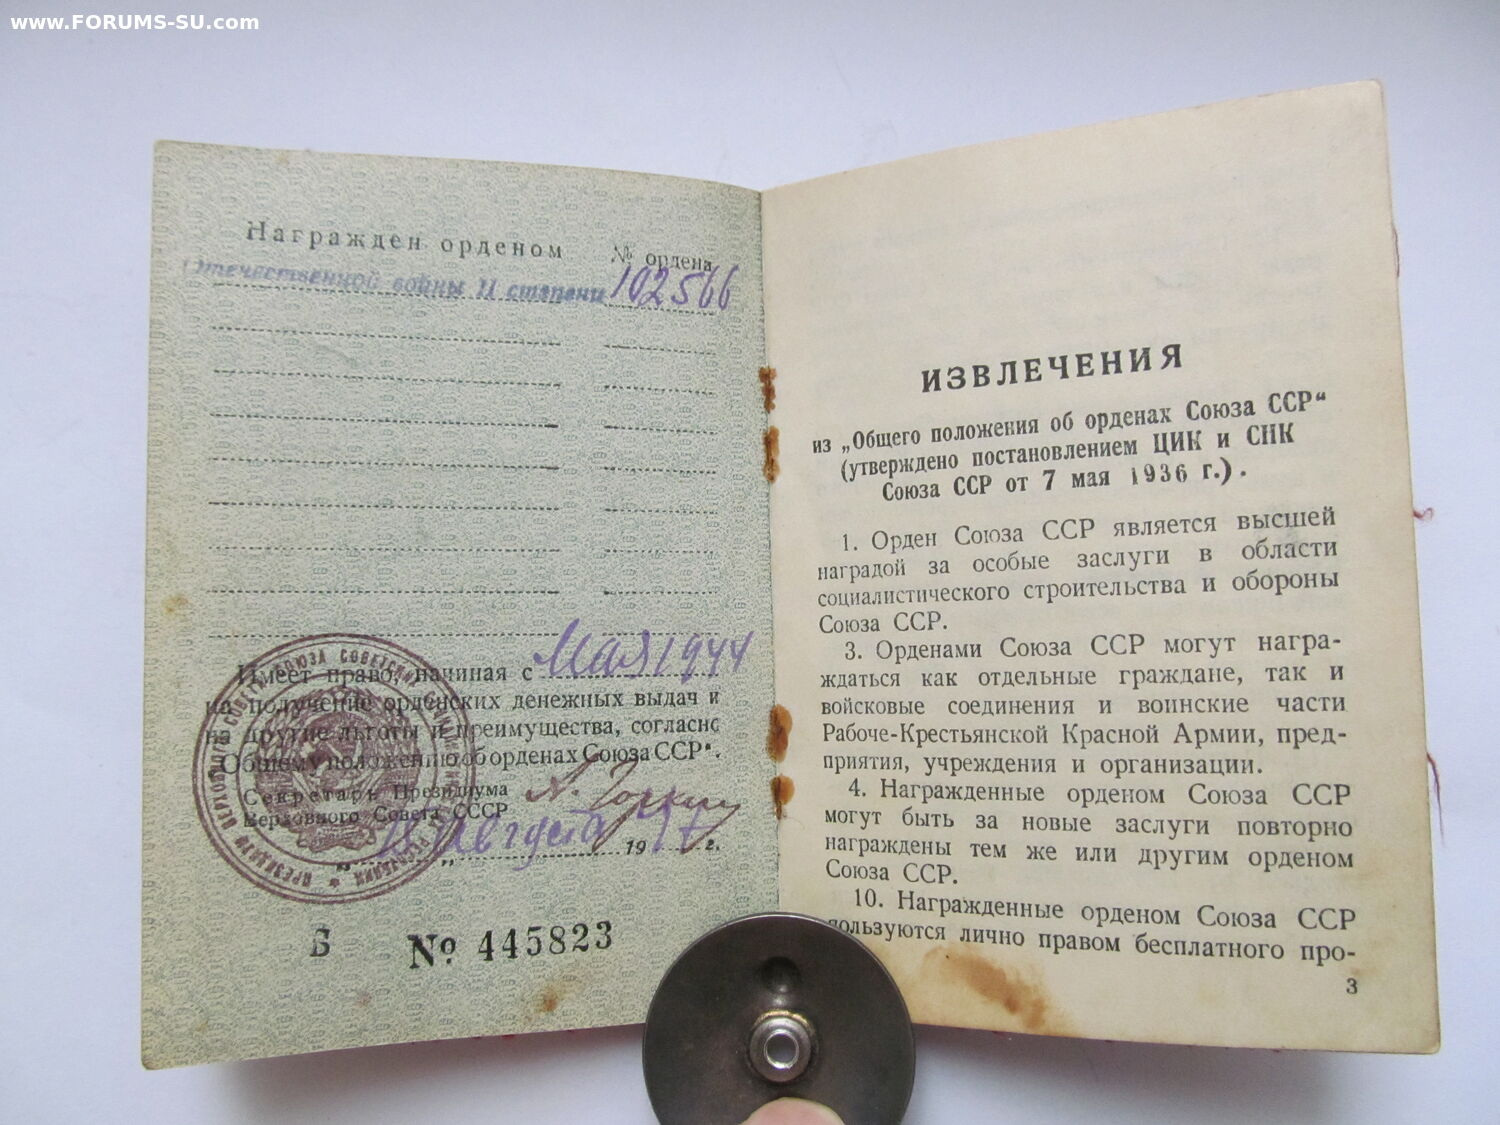 www.FORUMS-SU.com
Награжден орденом № ордена
Отечественной войны II степени 102566
Имеет право, начиная с Мая 1944
на получение орденских денежных выдач и
на другие льготы и преимущества, согласно
„Общему положению об орденах Союза ССР“.
Секретарь Президиума
Верховного Совета СССР А. Горкин
„18“ Августа 1947 г.
Б № 445823
ИЗВЛЕЧЕНИЯ
из „Общего положения об орденах Союза ССР“
(утверждено постановлением ЦИК и СНК
Союза ССР от 7 мая 1936 г.).
1. Орден Союза ССР является высшей
наградой за особые заслуги в области
социалистического строительства и обороны
Союза ССР.
3. Орденами Союза ССР могут награ-
ждаться как отдельные граждане, так и
войсковые соединения и воинские части
Рабоче-Крестьянской Красной Армии, пред-
приятия, учреждения и организации.
4. Награжденные орденом Союза ССР
могут быть за новые заслуги повторно
награждены тем же или другим орденом
Союза ССР.
10. Награжденные орденом Союза ССР
пользуются лично правом бесплатного про-
3